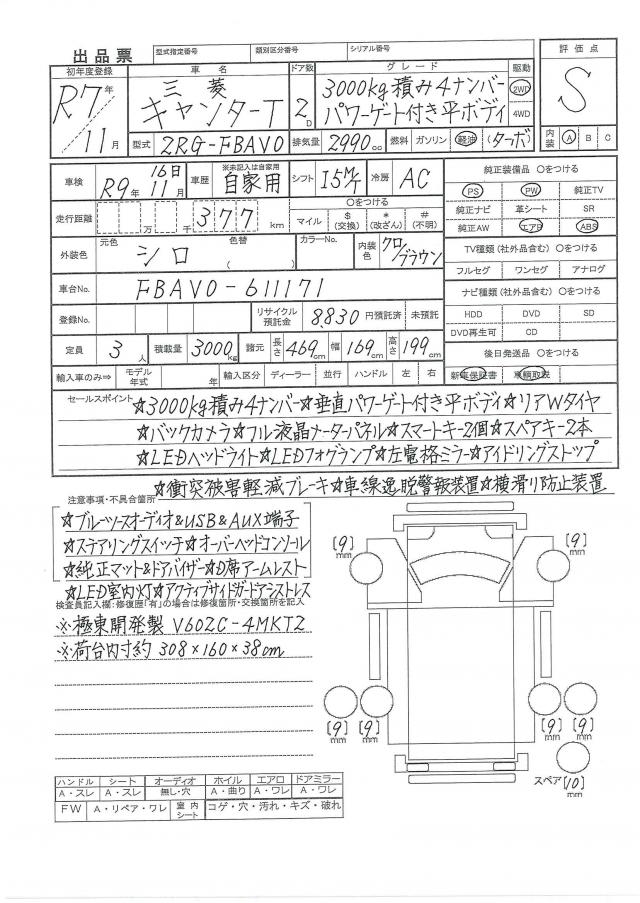 出品票 型式指定番号 類別区分番号 シリアル番号
初年度登録 車名 ドア数 グレード 駆動 評価点
R7年 三菱 3000kg積み4ナンバー 2WD S
キャンターT 2D パワーゲート付き平ボディ 4WD
11月 型式 2RG-FBAV0 排気量 2990cc 燃料 ガソリン 軽油 (ターボ) 内装 A B C
車検 R9年 16日 11月 車歴 ※未記入は自家用 自家用 シフト I5M/T 冷房 AC 純正装備品 ○をつける
PS PW 純正TV
走行距離 万 千 377 km ○をつける 純正ナビ 革シート SR
マイル $(交換) *(改ざん) #(不明) 純正AW エアB ABS
外装色 元色 シロ 色替 ( ) カラーNo. 内装色 クロ/ブラウン TV種類(社外品含む) ○をつける
フルセグ ワンセグ アナログ
車台No. FBAV0-611171 ナビ種類(社外品含む) ○をつける
登録No. リサイクル預託金 8830 円預託済 未預託 HDD DVD SD
DVD再生可 CD
定員 3人 積載量 3000kg 諸元 長さ 469cm 幅 169cm 高さ 199cm 後日発送品 ○をつける
輸入車のみ⇒ モデル年式 年 輸入区分 ディーラー 並行 ハンドル 左 右 新車保証書 車輌取説
セールスポイント ☆3000kg積み4ナンバー☆垂直パワーゲート付き平ボディ☆リアWタイヤ
☆バックカメラ☆フル液晶メーターパネル☆スマートキー2個☆スペアキー2本
☆LEDヘッドライト☆LEDフォグランプ☆左電格ミラー☆アイドリングストップ
☆衝突被害軽減ブレーキ☆車線逸脱警報装置☆横滑り防止装置
注意事項・不具合箇所
☆ブルーツースオーディオ&USB&AUX端子
☆ステアリングスイッチ☆オーバーヘッドコンソール
☆純正マット&ドアバイザー☆D席アームレスト
☆LED室内灯☆アクティブサイドガードアシストレス
検査員記入欄:修復歴「有」の場合は修復箇所・交換箇所を記入
※極東開発製 V602C-4MKT2
※荷台内寸約 308×160×38cm
[9]mm [9]mm
[9]mm [9]mm [9]mm [9]mm
スペア [10]mm
ハンドル シート オーディオ ホイル エアロ ドアミラー
A・スレ A・スレ 無し・穴 A・曲り A・ワレ A・ワレ
FW A・リペア・ワレ 室内シート コゲ・穴・汚れ・キズ・破れ